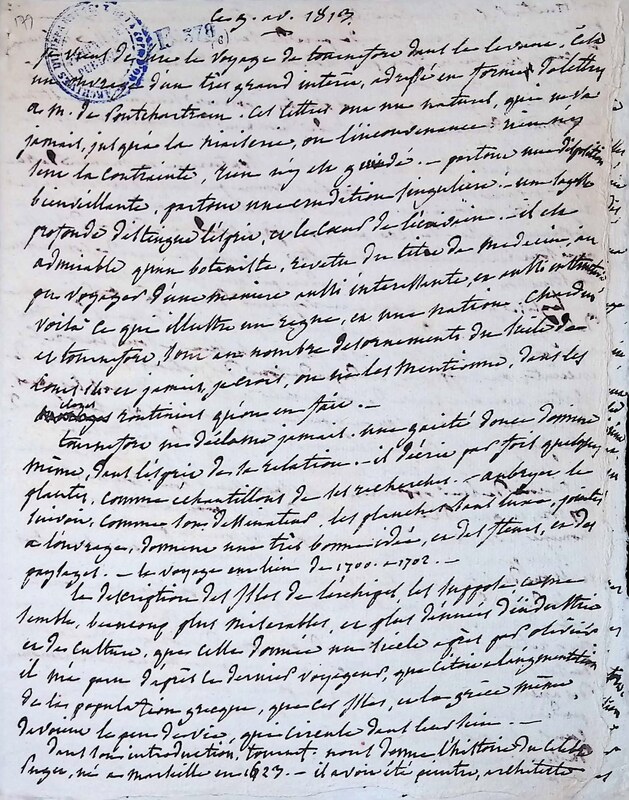 ce 9. av. 1813.
E 378
je viens de lire le voyage de tournefort dans le levant. C'est
un ouvrage d'un très grand intérêt, adressé en forme de lettres
à m. de Pontchartrain. Ces lettres ont un naturel, qui ne va
jamais, jusqu'à la niaiserie, ou l'inconvenance. rien n'y
sent la contrainte, rien n'y est guindé. — partout une disposition
bienveillante, partout une érudition singulière. — une sagesse
profonde distingue l'esprit, et le coeur de l'écrivain. — il est
admirable qu'un botaniste, revêtu du titre de médecin, ait
pu voyager d'une manière aussi intéressante, et aussi instructive
voilà ce qui illustre un règne, et une nation. Chardin
et tournefort, sont au nombre des ornements du siècle de
Louis 14. et jamais, je crois, on ne les mentionne, dans les
éloges routiniers qu'on en fait. —
tournefort ne déclame jamais, une gaieté douce domine
même, dans l'esprit de sa relation. — il décrit par fois quelques
plantes, comme échantillons de ses recherches. — aubryet le
suivoit, comme son dessinateur, les planches sans luxe jointes
à l'ouvrage, donnent une très bonne idée, et des fleurs, et des
paysages. — le voyage eut lieu de 1700. à 1702. —
la description des isles de l'archipel, les suppose, ce me
semble, beaucoup plus misérables, et plus dénuées d'industrie
et de culture, que celle donnée un siècle après par olivier
il me paroît d'après ce dernier voyageur, que c'étoit à l'augmentation
de la population grecque, que ces isles, et la grèce même
devoient le peu de vie, qui circule dans leur sein. —
dans son introduction, tournef. nous donne l'histoire du célèbre
Puget, né à marseille en 1623. — il avoit été peintre, architecte